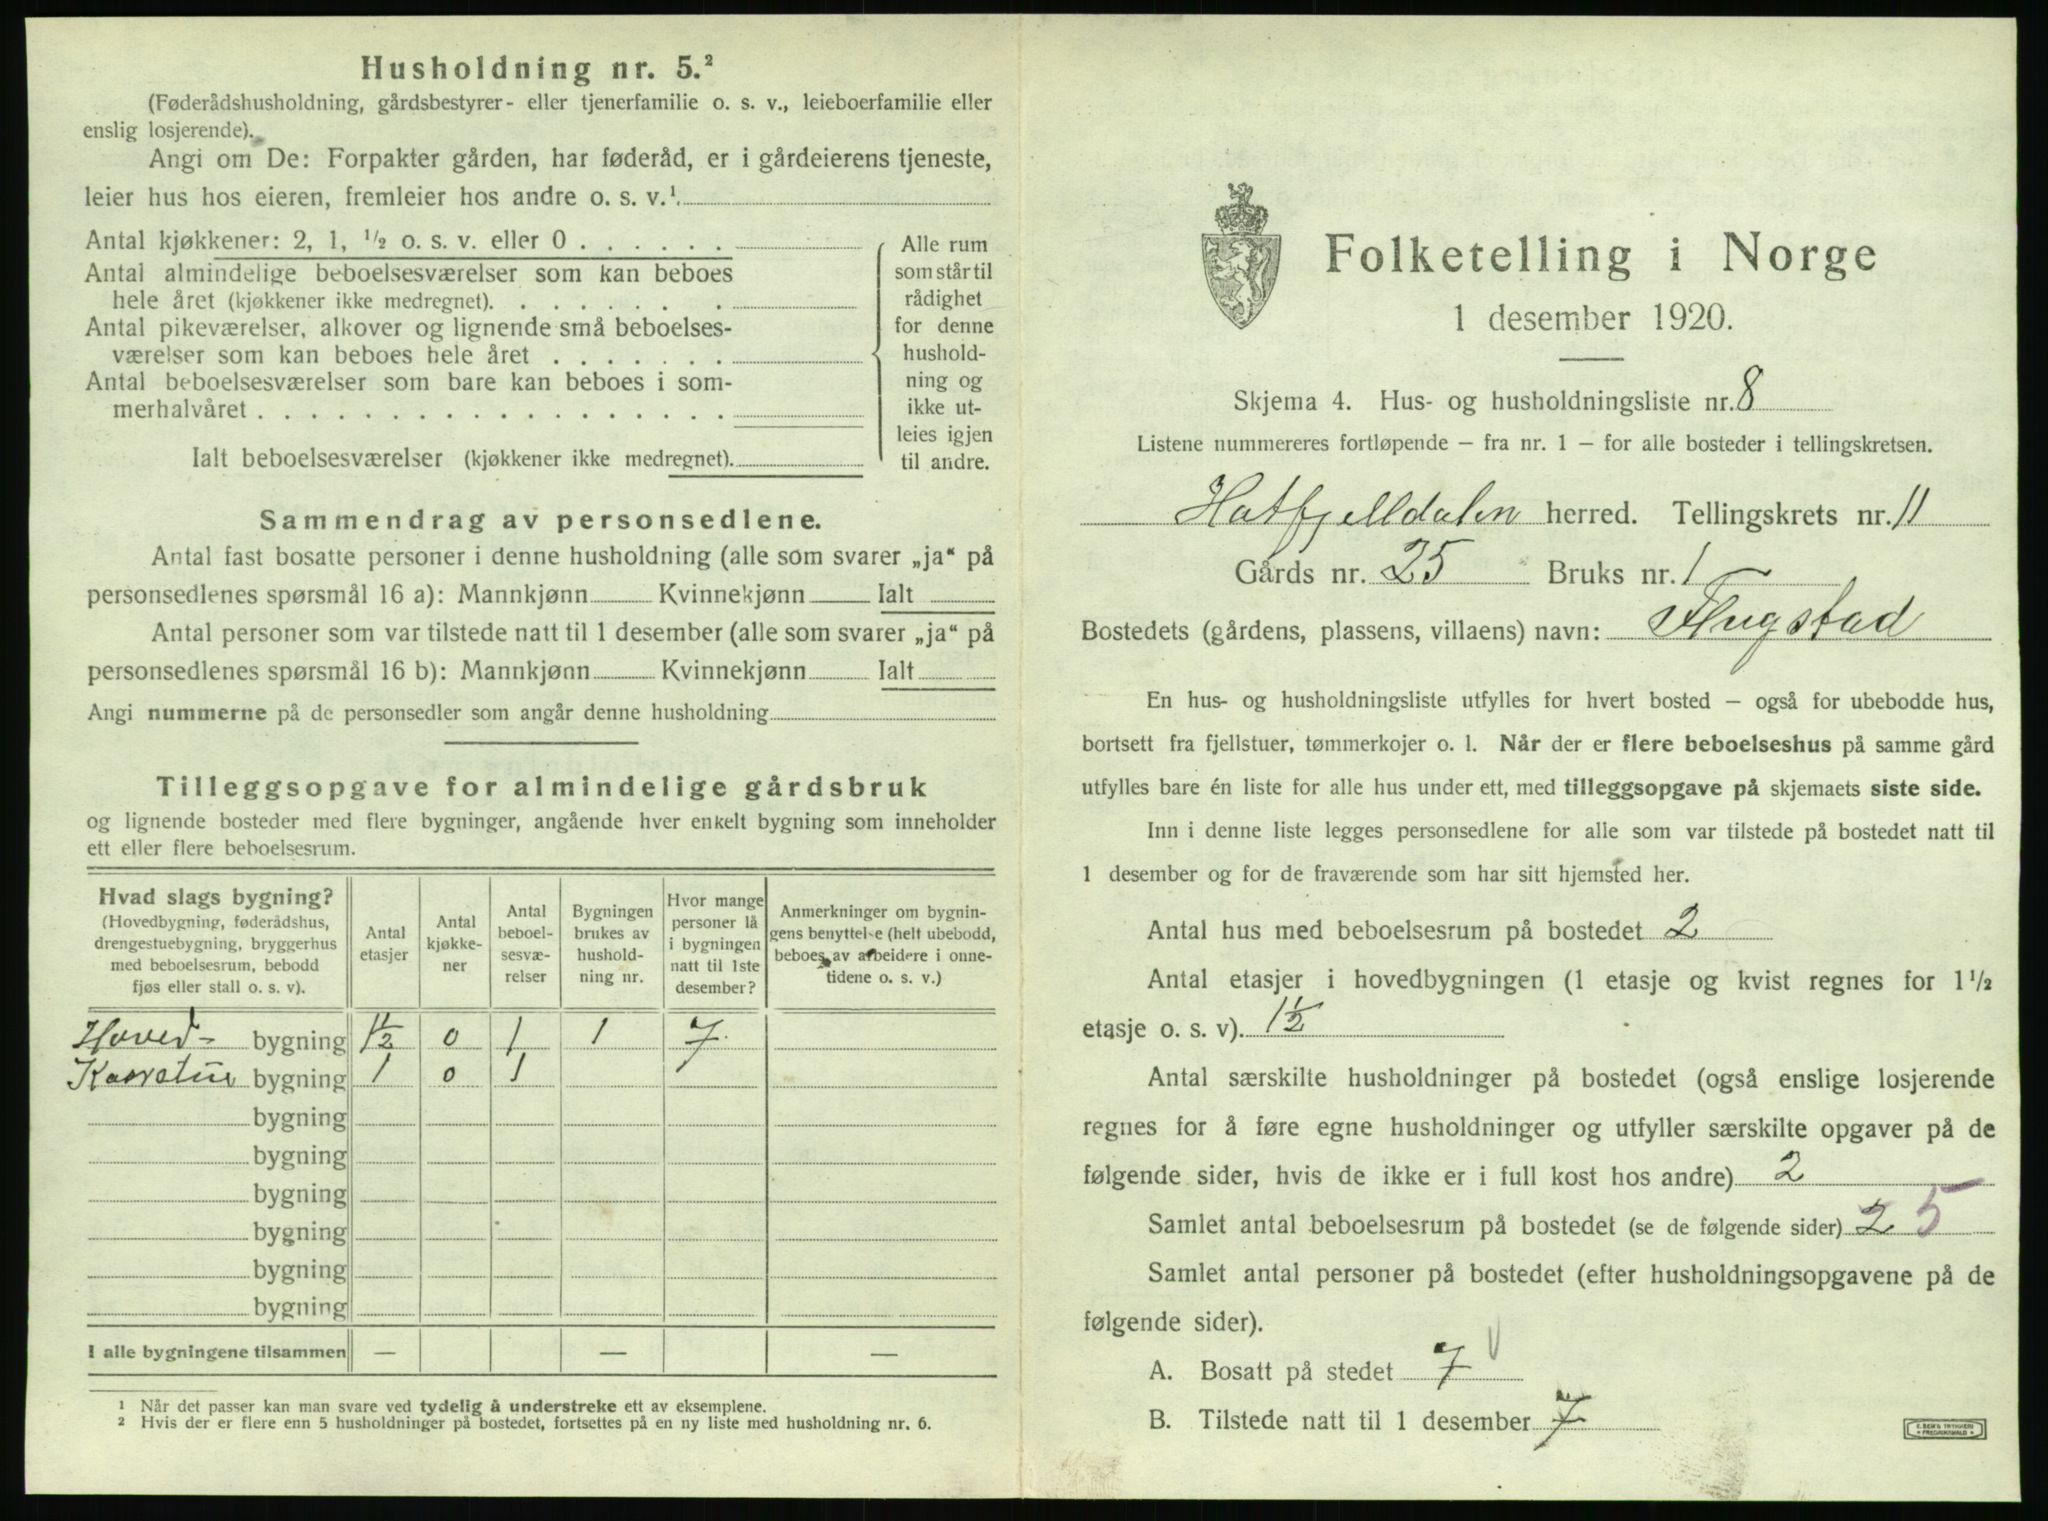 Husholdning nr. 5.²
(Føderådshusholdning, gårdsbestyrer- eller tjenerfamilie o. s. v., leieboerfamilie eller
enslig losjerende).
Angi om De: Forpakter gården, har føderåd, er i gårdeierens tjeneste,
leier hus hos eieren, fremleier hos andre o. s. v.¹
Antal kjøkkener: 2, 1, ½ o. s. v. eller 0 . . . . . .
Antal almindelige beboelsesværelser som kan beboes
hele året (kjøkkener ikke medregnet). . . . . . . .
Antal pikeværelser, alkover og lignende små beboelses-
værelser som kan beboes hele året . . . . . . .
Antal beboelsesværelser som bare kan beboes i som-
merhalvåret . . . . . . . . . . . . . . . . . .
Ialt beboelsesværelser (kjøkkener ikke medregnet).
Alle rum
som står til
rådighet
for denne
hushold-
ning og
ikke ut-
leies igjen
til andre.
Sammendrag av personsedlene.
Antal fast bosatte personer i denne husholdning (alle som svarer „ja“ på
personsedlenes spørsmål 16 a): Mannkjønn Kvinnekjønn Ialt
Antal personer som var tilstede natt til 1 desember (alle som svarer „ja“ på
personsedlenes spørsmål 16 b): Mannkjønn Kvinnekjønn Ialt
Angi nummerne på de personsedler som angår denne husholdning
Tilleggsopgave for almindelige gårdsbruk
og lignende bosteder med flere bygninger, angående hver enkelt bygning som inneholder
ett eller flere beboelsesrum.
Hvad slags bygning?
(Hovedbygning, føderådshus,
drengestuebygning, bryggerhus
med beboelsesrum, bebodd
fjøs eller stall o. s. v).
Antal
etasjer
Antal
kjøkke-
ner
Antal
beboel-
sesvæ-
relser
Bygningen
brukes av
hushold-
ning nr.
Hvor mange
personer lå
i bygningen
natt til 1ste
desember?
Anmerkninger om bygnin-
gens benyttelse (helt ubebodd,
beboes av arbeidere i onne-
tidene o. s. v.)
Hoved- bygning 1½ 0 1 1 7
bygning 1 0 1
bygning
bygning
bygning
bygning
bygning
bygning
I alle bygningene tilsammen — — —
¹ Når det passer kan man svare ved tydelig å understreke ett av eksemplene.
² Hvis der er flere enn 5 husholdninger på bostedet, fortsettes på en ny liste med husholdning nr. 6.
Folketelling i Norge
1 desember 1920.
Skjema 4. Hus- og husholdningsliste nr. 8
Listene nummereres fortløpende — fra nr. 1 — for alle bosteder i tellingskretsen.
Hatfjelldalen herred. Tellingskrets nr. 11
Gårds nr. 25 Bruks nr. 1
Bostedets (gårdens, plassens, villaens) navn: Flugstad
En hus- og husholdningsliste utfylles for hvert bosted — også for ubebodde hus,
bortsett fra fjellstuer, tømmerkojer o. l. Når der er flere beboelseshus på samme gård
utfylles bare én liste for alle hus under ett, med tilleggsopgave på skjemaets siste side.
Inn i denne liste legges personsedlene for alle som var tilstede på bostedet natt til
1 desember og for de fraværende som har sitt hjemsted her.
Antal hus med beboelsesrum på bostedet 2
Antal etasjer i hovedbygningen (1 etasje og kvist regnes for 1½
etasje o. s. v). 1½
Antal særskilte husholdninger på bostedet (også enslige losjerende
regnes for å føre egne husholdninger og utfyller særskilte opgaver på de
følgende sider, hvis de ikke er i full kost hos andre) 2
Samlet antal beboelsesrum på bostedet (se de følgende sider) 2 5
Samlet antal personer på bostedet (efter husholdningsopgavene på de
følgende sider).
A. Bosatt på stedet 7 v
B. Tilstede natt til 1 desember 7